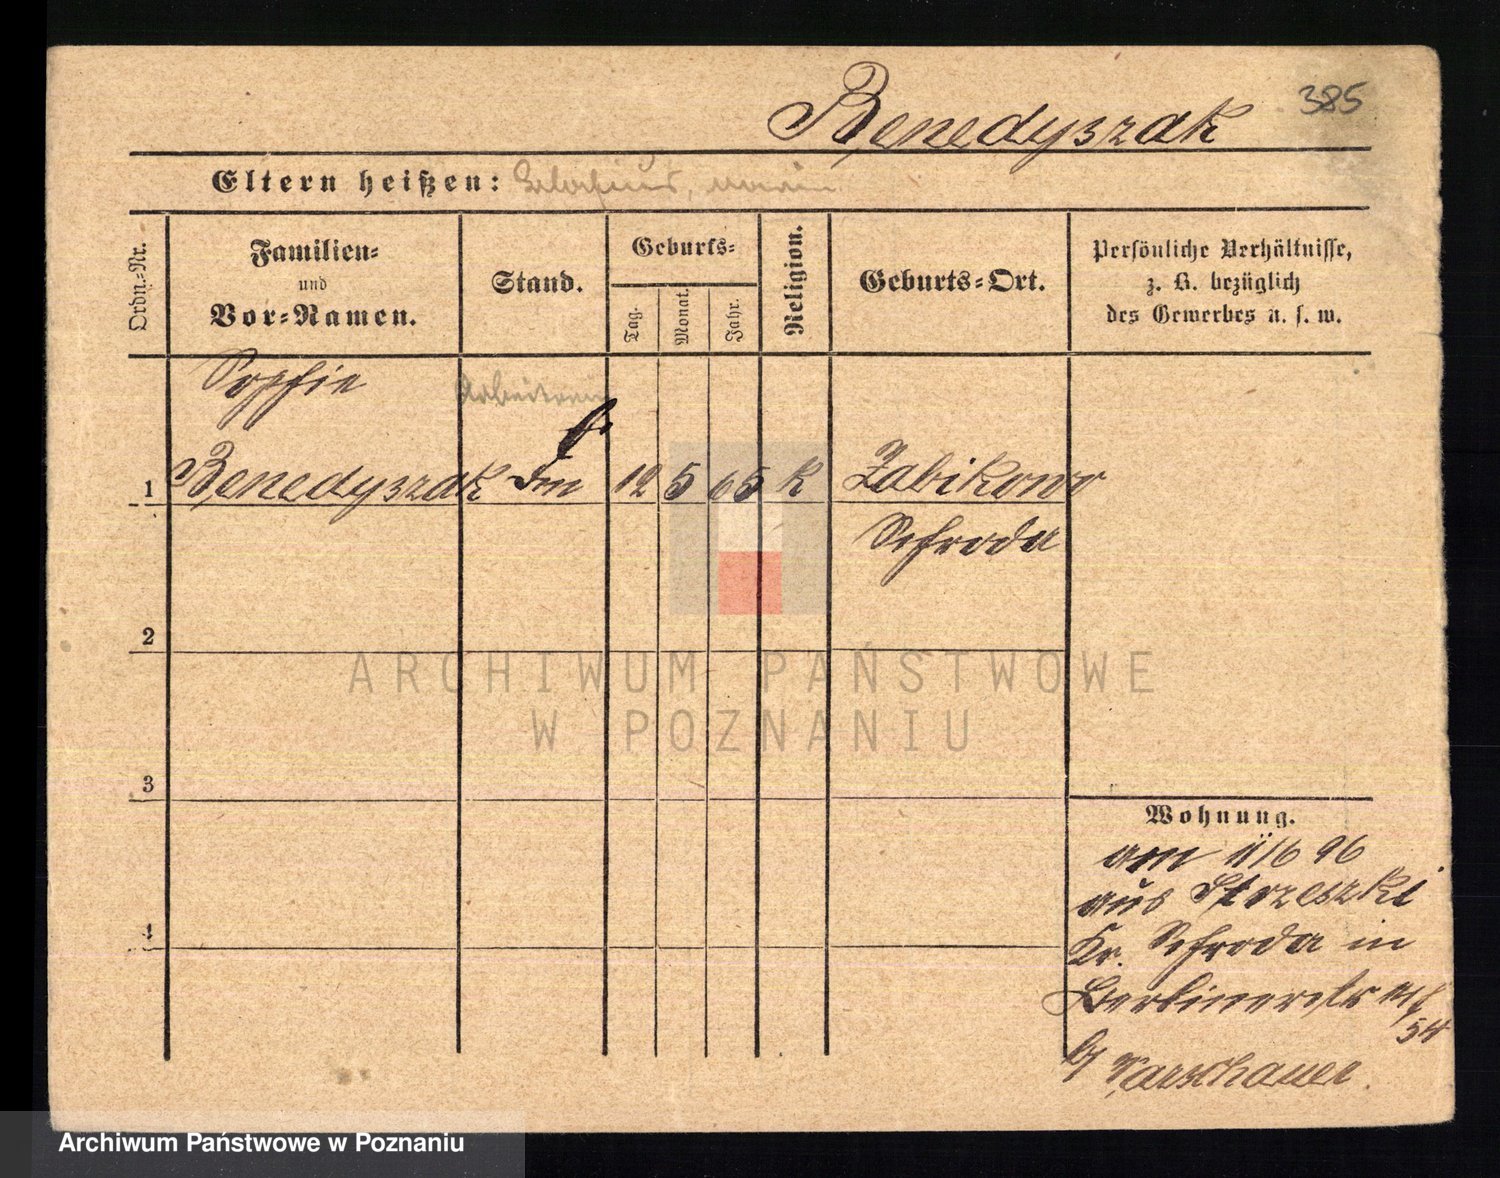 385
Benedyszak
Eltern heißen:
Ordn.-Nr.
Familien-
und
Vor-Namen.
Stand.
Geburts-
Tag.
Monat.
Jahr.
Religion.
Geburts-Ort.
Persönliche Verhältnisse,
z. B. bezüglich
des Gewerbes u. s. w.
Sophie
Arbeiterin
1 Benedyszak 12 5 65 k Zabikowo
Schroda
2
3
4
Wohnung.
am 11/6 96
aus Strzeszki
Kr. Schroda in
Berlinerstr
54
Warschauer.
ARCHIWUM PAŃSTWOWE
W POZNANIU
Archiwum Państwowe w Poznaniu